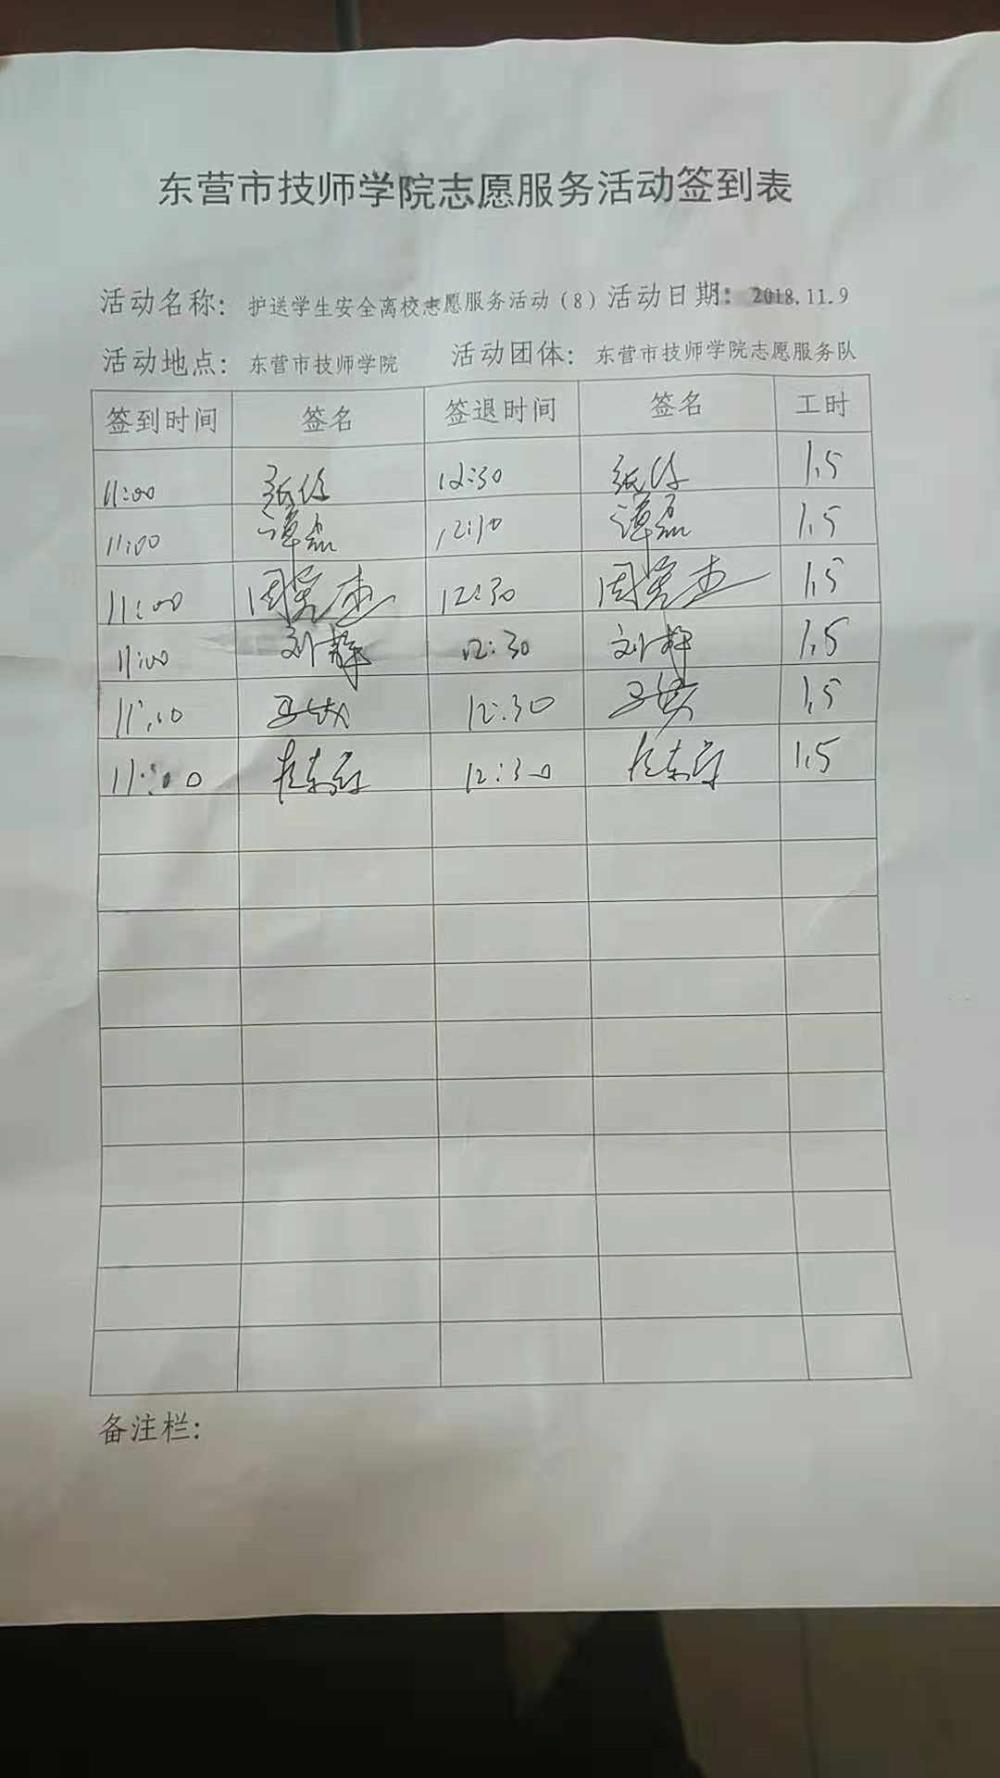 东营市技师学院志愿服务活动签到表
活动名称：护送学生安全离校志愿服务活动（8）活动日期：2018.11.9
活动地点：东营市技师学院 活动团体：东营市技师学院志愿服务队
签到时间 签名 签退时间 签名 工时
11:00 12:30 1.5
11:00 谭磊 12:30 谭磊 1.5
11:00 12:30 1.5
11:00 刘静 12:30 刘静 1.5
11:00 12:30 1.5
11:00 12:30 1.5
备注栏：